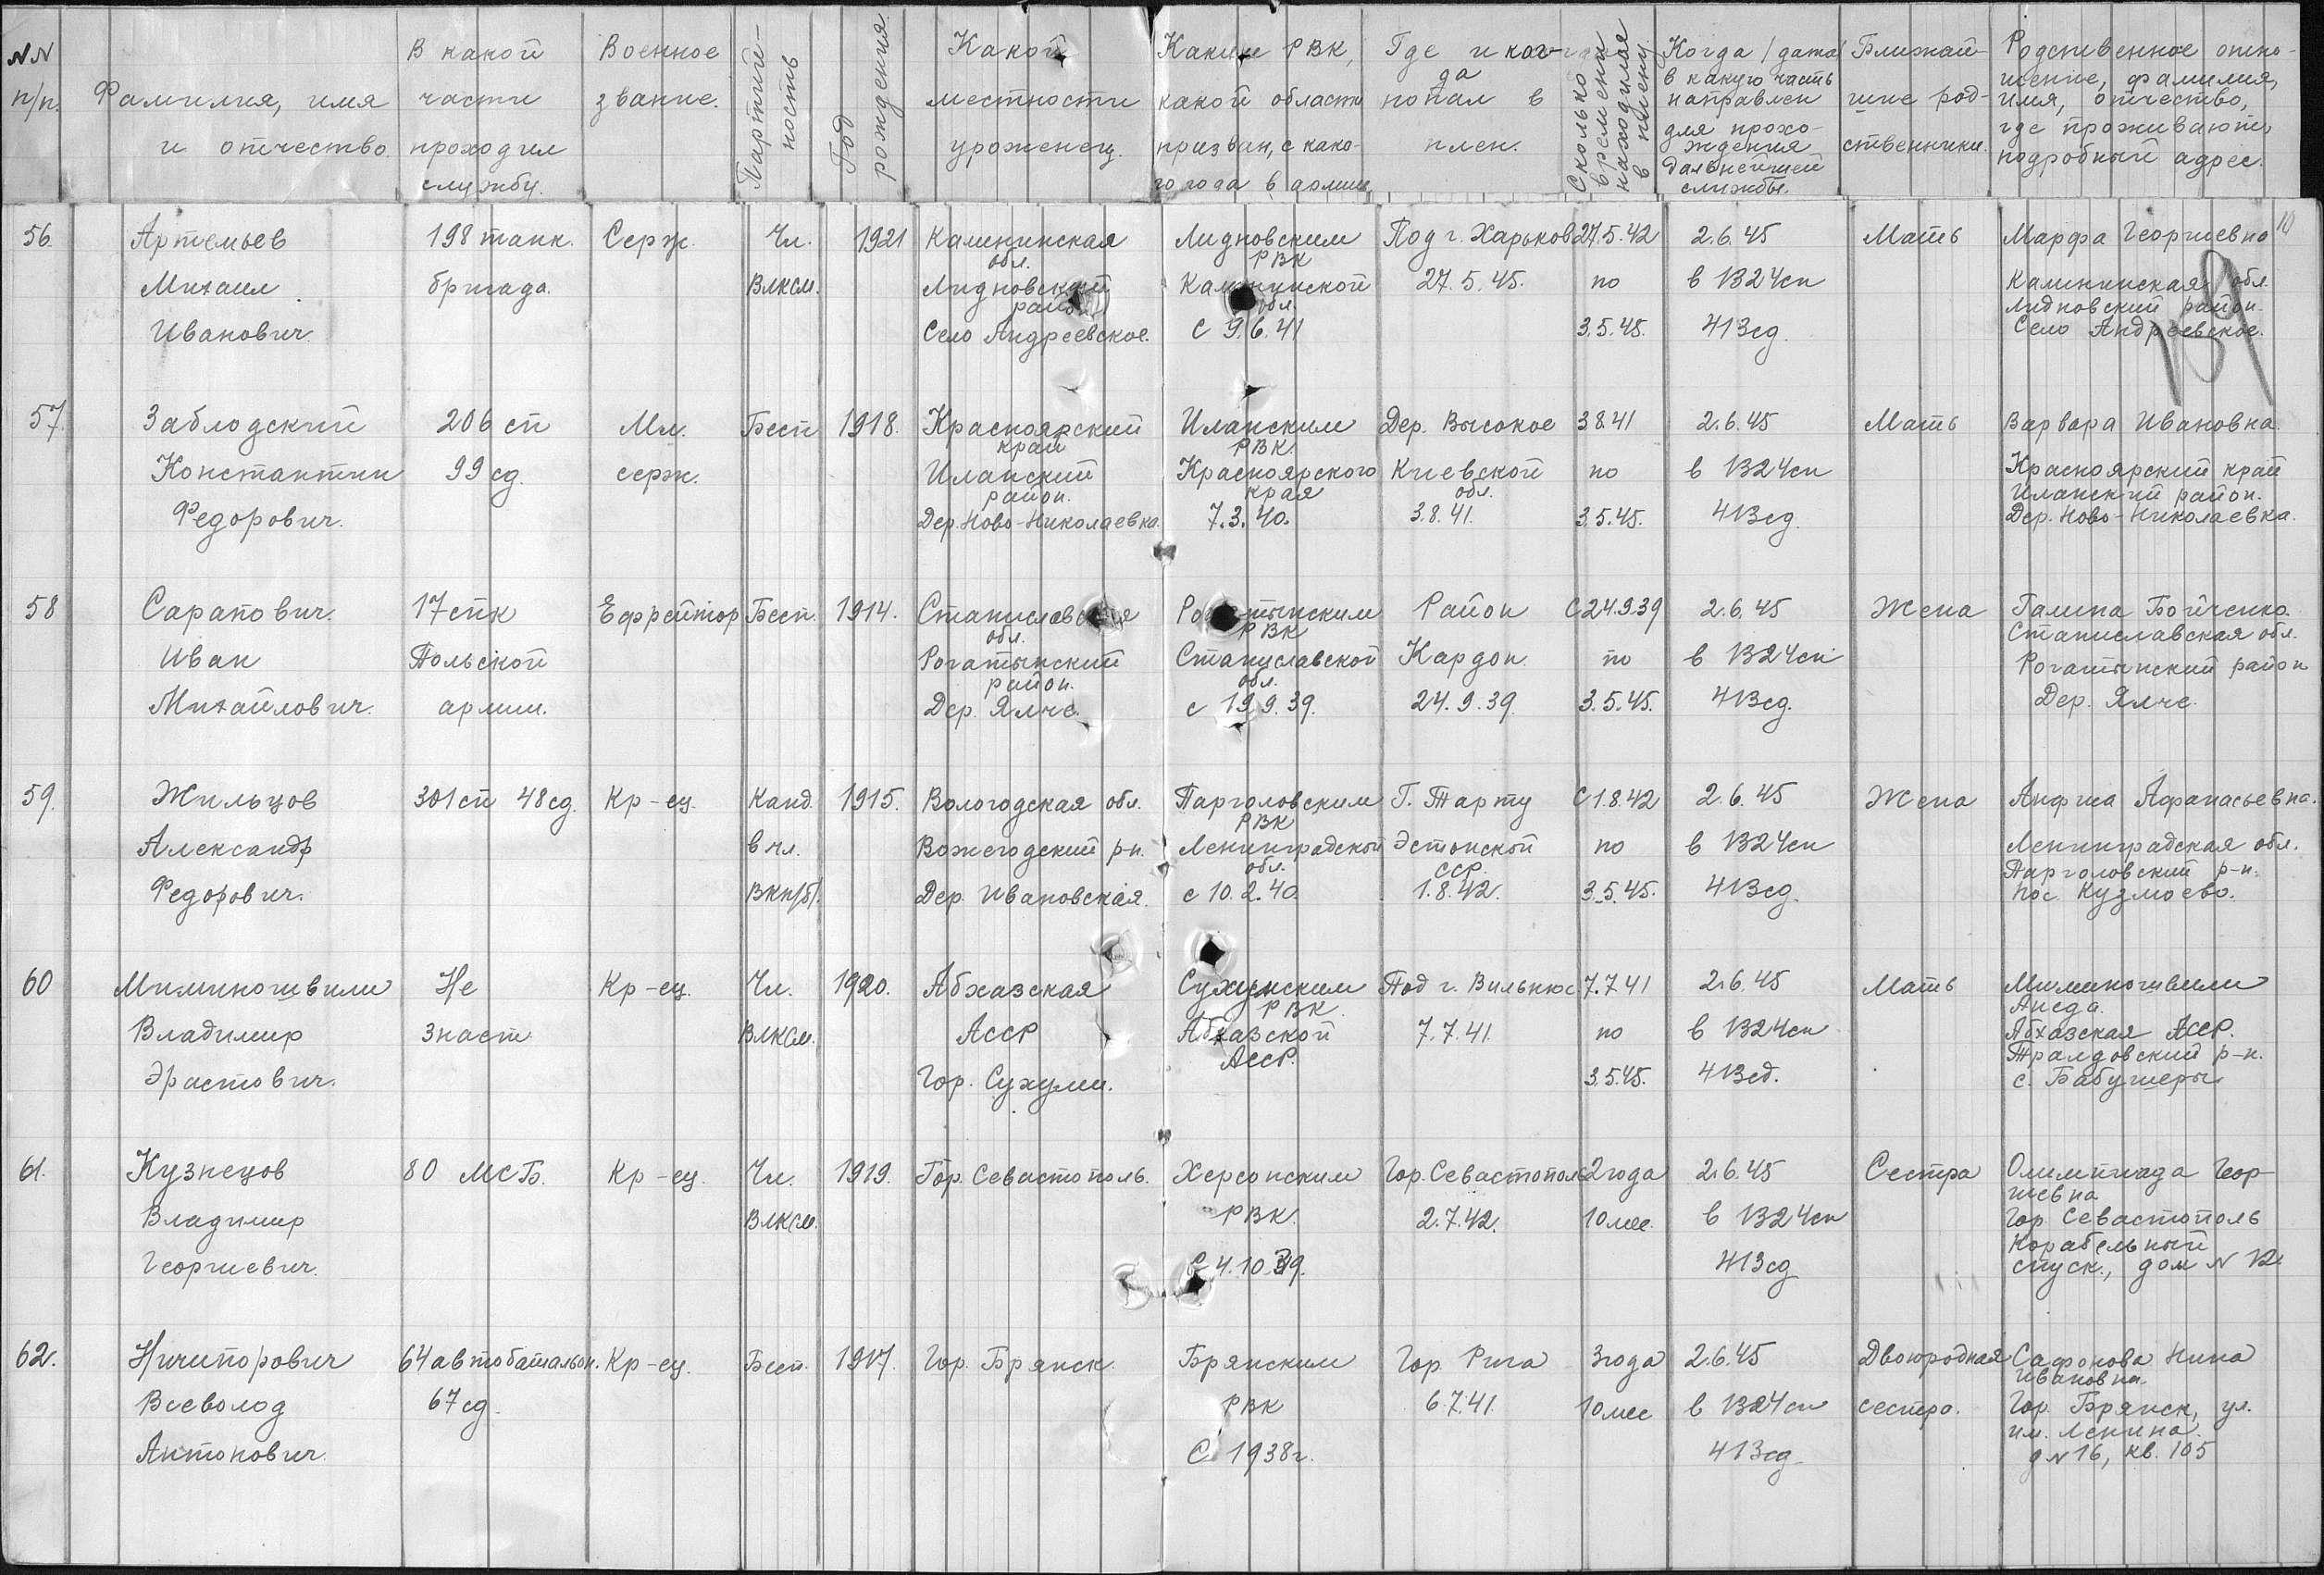 NN п/п.
Фамилия, имя и отчество.
В какой части проходил службу.
Военное звание.
Партийность
Год рождения.
Какой местности уроженец.
Каким РВК, какой области призван, с какого года в армии.
Где и когда попал в плен.
Сколько времени находился в плену
Когда /дата/ в какую часть направлен для прохождения дальнейшей службы.
Ближайшие родственники.
Родственное отношение, фамилия, имя, отчество, где проживают, подробный адрес.
56. Артемьев 198 танк. Серж. Чл. 1921 Калининская обл. Лидновским РВК Под г. Харьков 27.5.42 2.6.45 Мать Марфа Георгиевна
Михаил бригада. ВЛКСМ. Лидновский район Калининской обл. 27.5.45. по в 1324сп Калининская обл. Лидновский район.
Иванович. Село Андреевское. С 9.6.41 3.5.45. 413сд. Село Андреевское.
57. Заблодский 206 сп Мл. Бесп 1918. Красноярский край Иланским РВК. Дер. Высокое 3.8.41 2.6.45 Мать Варвара Ивановна.
Константин 99 сд. серж. Иланский район. Красноярского края Киевской обл. по в 1324сп Красноярский край Иланский район.
Федорович. Дер. Ново-Николаевка. 7.3.40. 3.8.41. 3.5.45. 413сд. Дер. Ново-Николаевка.
58 Сарапович. 17спк Ефрейтор Бесп. 1914. Станиславская обл. Рогатынским РВК Район С 24.9.39 2.6.45 Жена Галина Бойченко. Станиславская обл.
Иван Польской Рогатынский район. Станиславской обл. Кардон. по в 1324сп Рогатынский район
Михайлович. армии. Дер. Ялче. с 19.9.39. 24.9.39. 3.5.45. 413сд. Дер. Ялче.
59. Жильцов 301сп 48сд. Кр-ец. Канд. 1915. Вологодская обл. Парголовским РВК Г. Тарту С 1.8.42 2.6.45 Жена Анфиса Афанасьевна.
Александр в чл. Вожегодский р-н. Ленинградской обл. Эстонской ССР. по в 1324сп Ленинградская обл. Парголовский р-н.
Федорович. ВКП/б/. Дер. Ивановская. с 10.2.40. 1.8.42. 3.5.45. 413сд. пос. Кузмоево.
60 Миминошвили Не Кр-ец. Чл. 1920. Абхазская Сухумским РВК. Под г. Вильнюс 7.7.41 2.6.45 Мать Миминошвили
Владимир знаст ВЛКСМ. АССР Абхазской АССР. 7.7.41. по в 1324сп Абхазская АССР.
Эрастович. Гор. Сухуми. 3.5.45. 413сд. с. Бабушеры
61. Кузнецов 80 МСБ. Кр-ец. Чл. 1919. Гор. Севастополь. Херсонским Гор. Севастополь 2года 2.6.45 Сестра Олимпиада Георгиевна
Владимир ВЛКСМ. РВК. 2.7.42. 10мес. в 1324сп Гор. Севастополь Корабельный
Георгиевич. С 4.10.39. 413сд спуск., дом N 12.
62. Ничипорович 64автобатальон. Кр-ец. Бесп. 1917. Гор. Брянск. Брянским Гор. Рига 3года 2.6.45 Двоюродная Сафонова Нина Ивановна.
Всеволод 67сд. РВК 6.7.41. 10мес в 1324сп сестра. Гор. Брянск, ул. им. Ленина.
Антонович. С 1938г. 413сд. д N 16, кв. 105